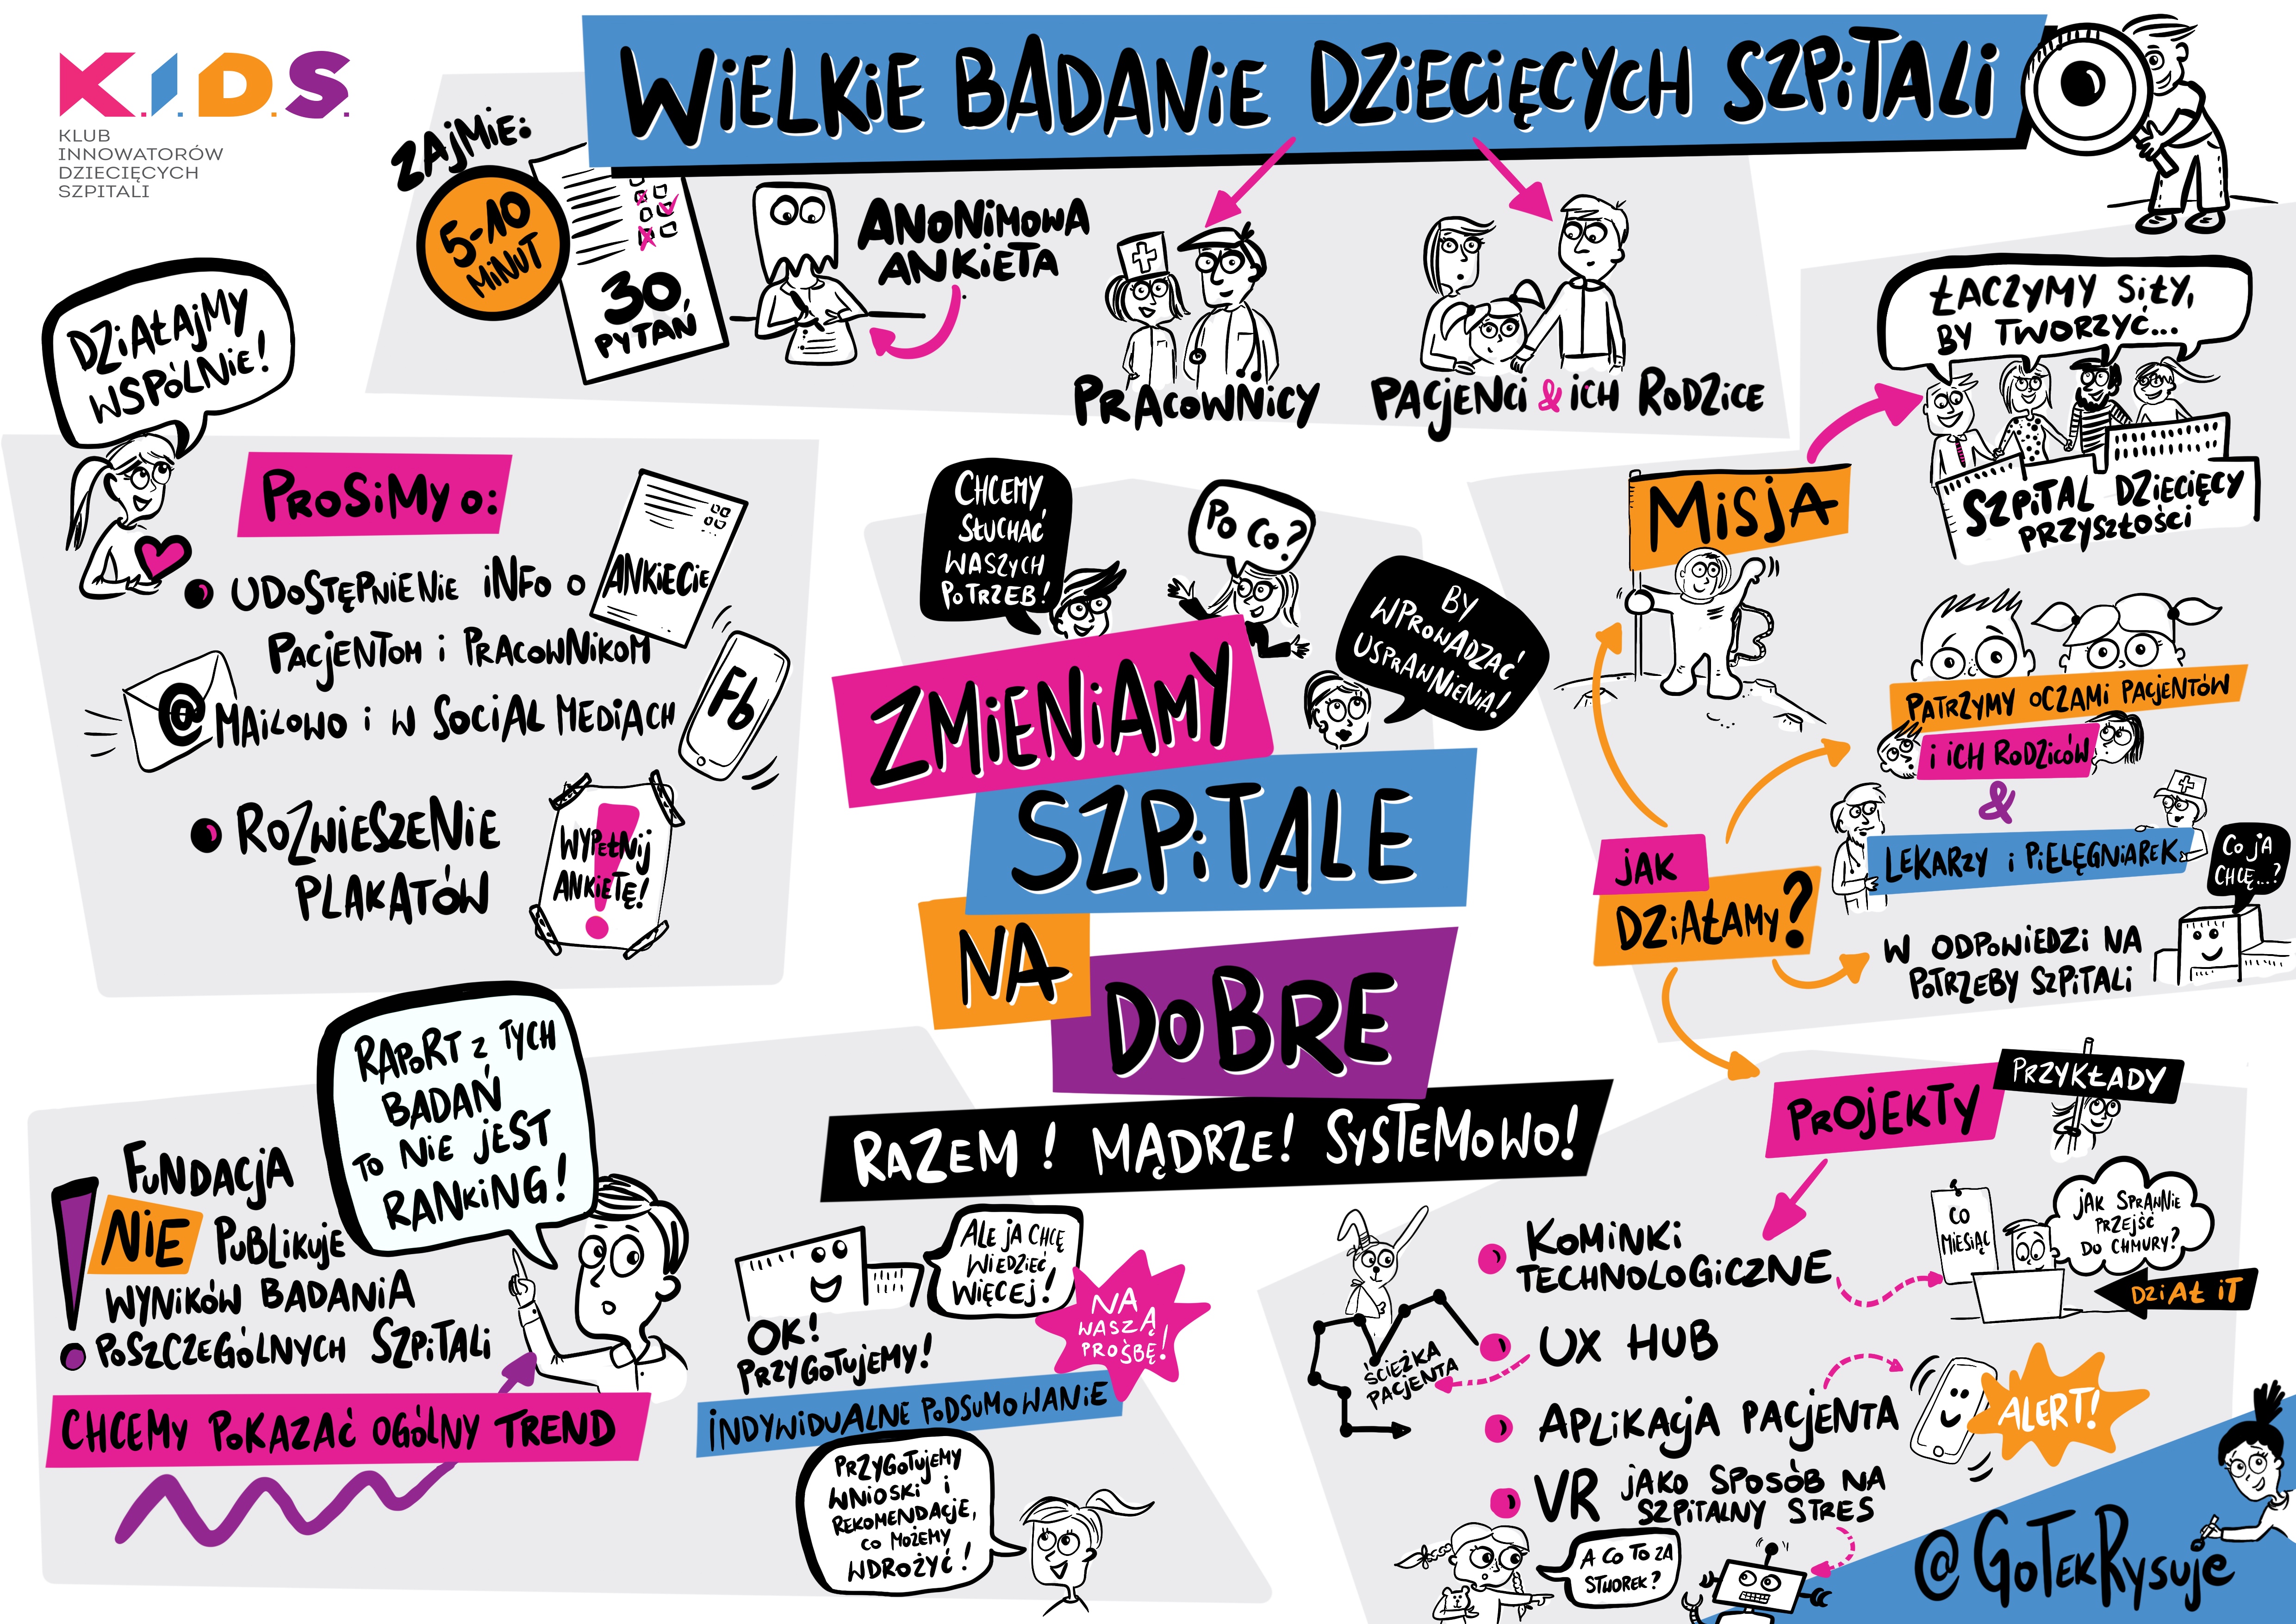 K.I.D.S.
KLUB
INNOWATORÓW
DZIECIĘCYCH
SZPITALI
WIELKIE BADANIE DZIECIĘCYCH SZPITALI
ZAJMIE:
5-10
MINUT
30
PYTAŃ
ANONIMOWA
ANKIETA
PRACOWNICY
PACJENCI & ICH RODZICE
DZIAŁAJMY
WSPÓLNIE!
PROSIMY O:
UDOSTĘPNIENIE INFO O ANKIECIE
PACJENTOM I PRACOWNIKOM
@ MAILOWO I W SOCIAL MEDIACH
Fb
ROZWIESZENIE
PLAKATÓW
WYPEŁNIJ
ANKIETĘ!
CHCEMY
SŁUCHAĆ
WASZYCH
POTRZEB!
PO CO?
BY
WPROWADZAĆ
USPRAWNIENIA!
ZMIENIAMY
SZPITALE
NA
DOBRE
RAZEM! MĄDRZE! SYSTEMOWO!
ŁĄCZYMY SIŁY,
BY TWORZYĆ...
SZPITAL DZIECIĘCY
PRZYSZŁOŚCI
MISJA
JAK
DZIAŁAMY?
PATRZYMY OCZAMI PACJENTÓW
I ICH RODZICÓW
&
LEKARZY I PIELĘGNIAREK
CO JA
CHCĘ...?
W ODPOWIEDZI NA
POTRZEBY SZPITALI
RAPORT Z TYCH
BADAŃ
TO NIE JEST
RANKING!
FUNDACJA
NIE PUBLIKUJE
WYNIKÓW BADANIA
POSZCZEGÓLNYCH SZPITALI
CHCEMY POKAZAĆ OGÓLNY TREND
ALE JA CHCĘ
WIEDZIEĆ
WIĘCEJ!
OK!
PRZYGOTUJEMY!
NA
WASZĄ
PROŚBĘ!
INDYWIDUALNE PODSUMOWANIE
PRZYGOTUJEMY
WNIOSKI I
REKOMENDACJE,
CO MOŻEMY
WDROŻYĆ!
PROJEKTY
PRZYKŁADY
KOMINKI
TECHNOLOGICZNE
CO
MIESIĄC
JAK SPRAWNIE
PRZEJŚĆ
DO CHMURY?
DZIAŁ IT
UX HUB
ŚCIEŻKA
PACJENTA
APLIKACJA PACJENTA
ALERT!
VR JAKO SPOSÓB NA
SZPITALNY STRES
A CO TO ZA
STWOREK?
@GoTekRysuje